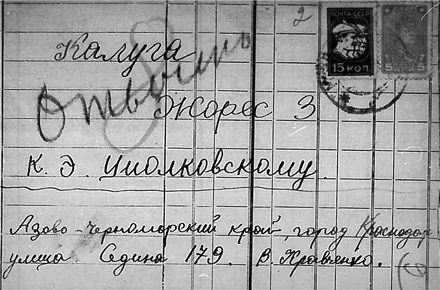 2
ПОЧТА СССР
15 КОП.
Калуга
Жорес 3
К. Э. Циолковскому.
Азово-Черноморский край, город Краснодар
улица Седина 179. В. Кравченко.